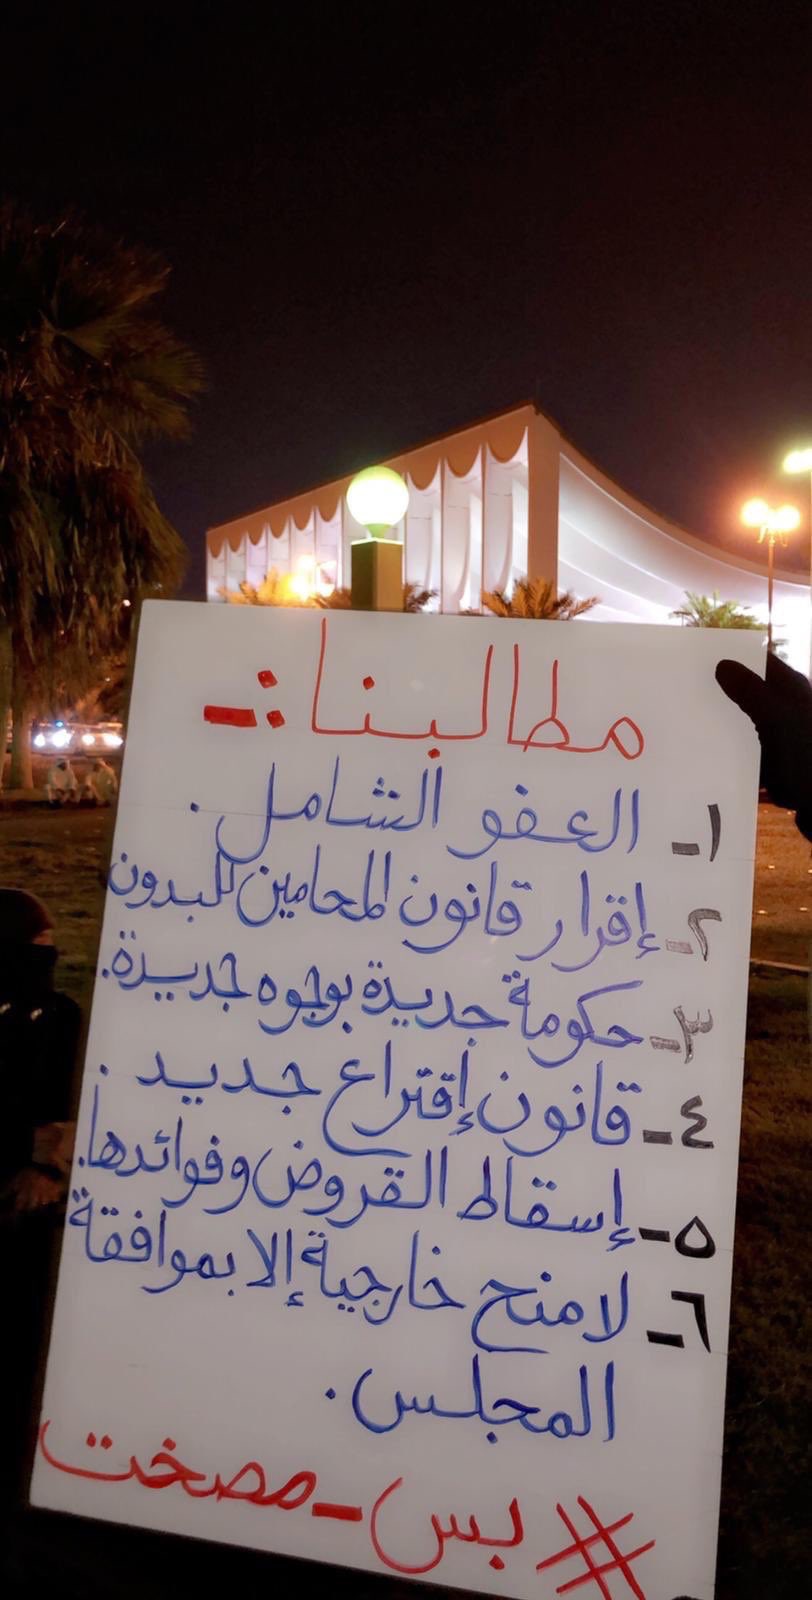 مطالبنا :-
١- العفو الشامل.
٢- إقرار قانون المحامين للبدون
٣- حكومة جديدة بوجوه جديدة.
٤- قانون إقتراع جديد.
٥- إسقاط القروض وفوائدها.
٦- لا منح خارجية إلا بموافقة
المجلس.
#بس_مصخت